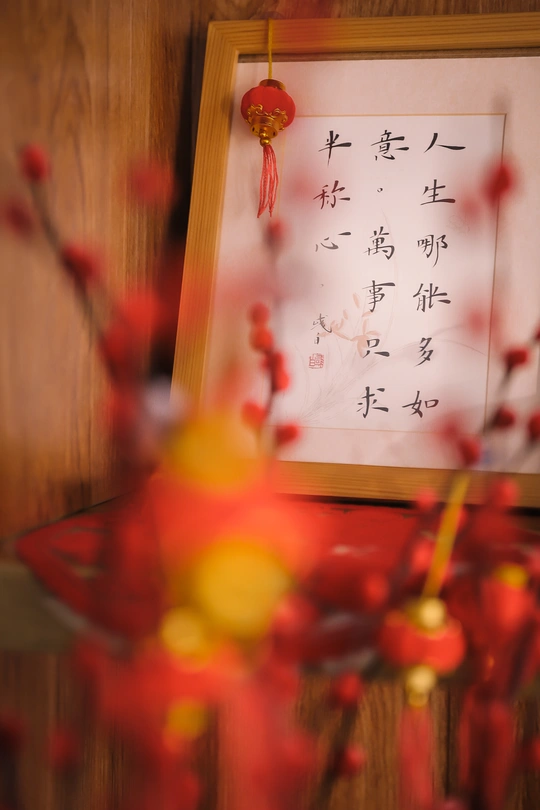 人生哪能多如
意。萬事只求
半称心。